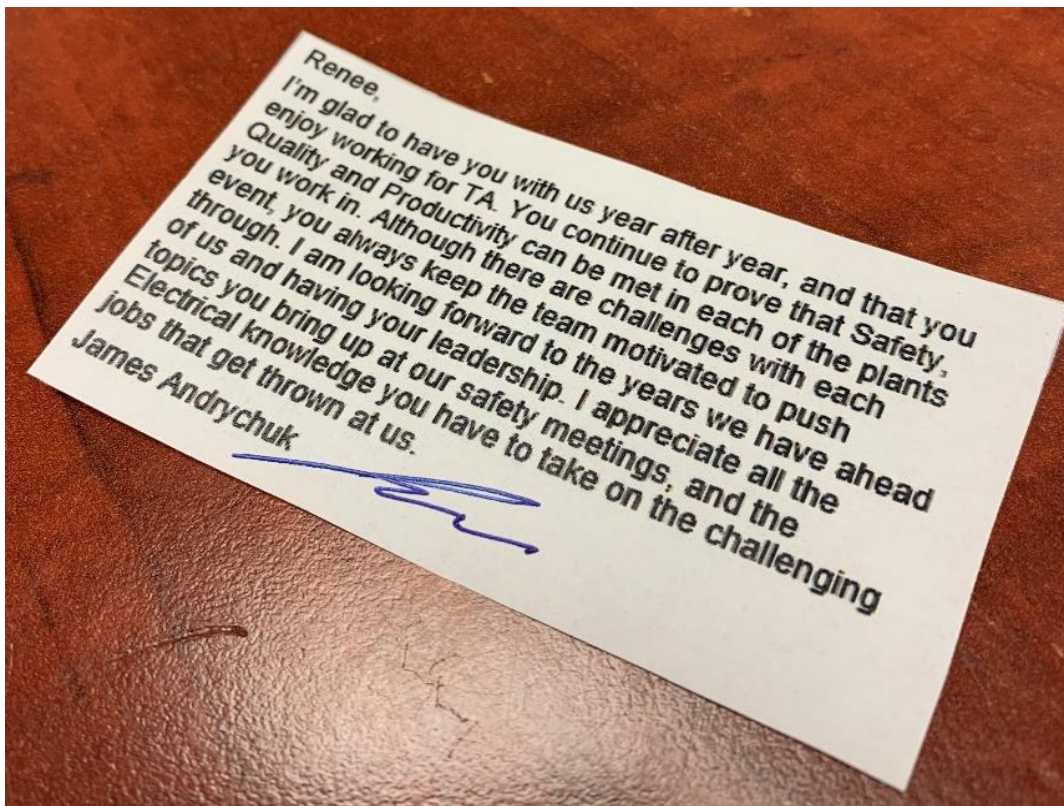 Renee,
I'm glad to have you with us year after year, and that you
enjoy working for TA. You continue to prove that Safety,
Quality and Productivity can be met in each of the plants
you work in. Although there are challenges with each
event, you always keep the team motivated to push
through. I am looking forward to the years we have ahead
of us and having your leadership. I appreciate all the
topics you bring up at our safety meetings, and the
Electrical knowledge you have to take on the challenging
jobs that get thrown at us.
James Andrychuk